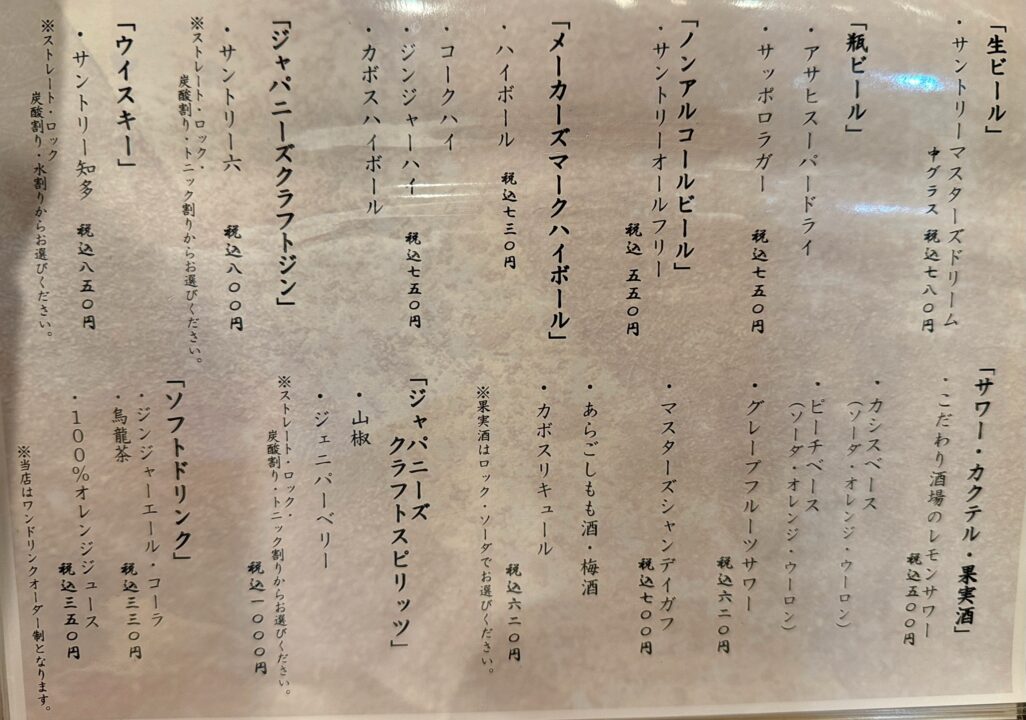 「生ビール」
・サントリーマスターズドリーム
中グラス 税込七八〇円
「瓶ビール」
・アサヒスーパードライ
・サッポロラガー
税込七五〇円
「ノンアルコールビール」
・サントリーオールフリー
税込 五五〇円
「メーカーズマークハイボール」
・ハイボール
税込七三〇円
・コークハイ
・ジンジャーハイ
税込七五〇円
・カボスハイボール
「ジャパニーズクラフトジン」
・サントリー六
税込八〇〇円
※ストレート・ロック・
炭酸割り・トニック割りからお選びください。
「ウイスキー」
・サントリー知多
税込八五〇円
※ストレート・ロック
炭酸割り・水割りからお選びください。
「サワー・カクテル・果実酒」
・こだわり酒場のレモンサワー
税込五〇〇円
・カシスベース
（ソーダ・オレンジ・ウーロン）
・ピーチベース
（ソーダ・オレンジ・ウーロン）
・グレープフルーツサワー
税込六二〇円
・マスターズシャンディガフ
税込七〇〇円
・あらごしもも酒・梅酒
・カボスリキュール
税込六二〇円
※果実酒はロック・ソーダでお選びください。
「ジャパニーズ
クラフトスピリッツ」
・山椒
・ジェニパーベリー
税込一〇〇〇円
※ストレート・ロック・
炭酸割り・トニック割りからお選びください。
「ソフトドリンク」
・ジンジャーエール・コーラ
・烏龍茶
税込三三〇円
・100％オレンジジュース
税込三五〇円
※当店はワンドリンクオーダー制となります。